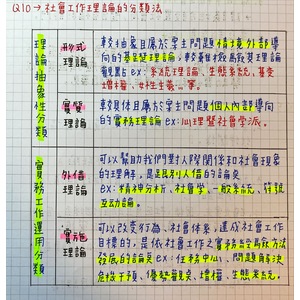 Q10→社會工作理論的分類法
理論抽象性分類
形式理論
較抽象且屬於案主問題情境外部導
向的基礎理論，較著重
觀點 ex：系統理論、生態系統、基變
增權、女性主義…等。
實質理論
較具體且屬於案主問題個人內部導向
的實務理論 ex：心理暨社會學派。
實務工作運用分類
外借理論
可以幫助我們對人際關係和社會現象
的理解，是由別人借的論點
ex：精神分析、社會學、一般系統、符號
互動論。
實施理論
可以改變行為、社會情緒，達成社會工作
目標的，是依社會工作之實務
發展的論點 ex：任務中心、問題解決
危機干預、優勢觀點、增權、生態系統。